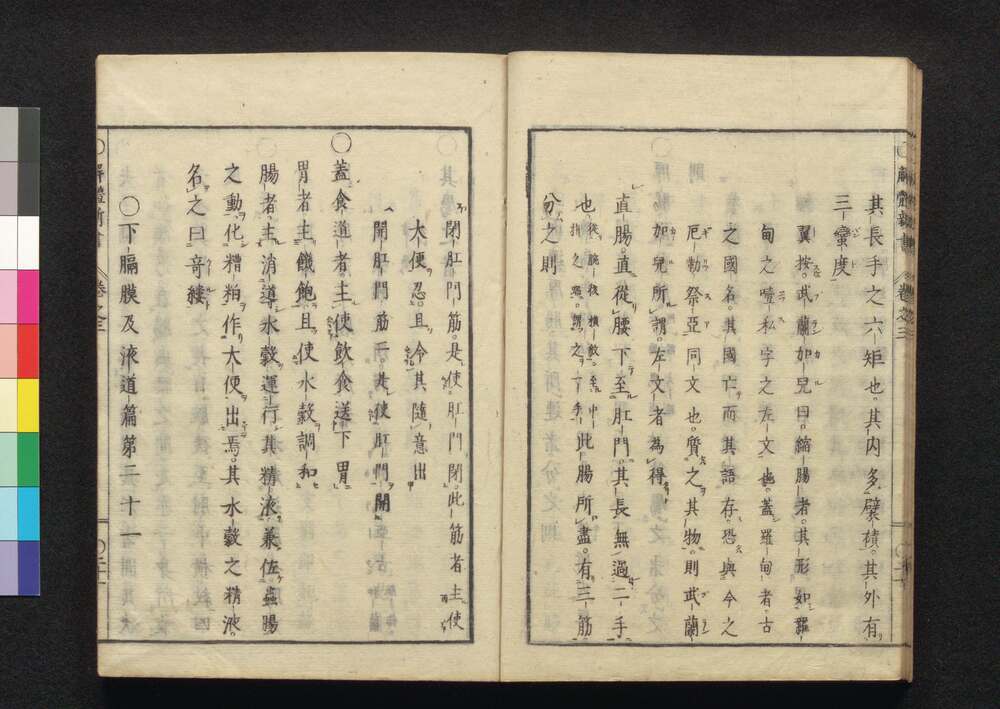 解體新書 卷之三
其長手之六矩也。其内多襞積。其外有
三蠻度
翼按。武蘭加兒曰。縮腸者。其形如羅
甸之噎私字之左文也。蓋羅甸者。古
之國名。其國亡。而其語存。恐與今之
厄勒祭亞同文也。質之其物。則武蘭
加兒所謂。左文者為得。
直腸。直從腰下至肛門。其長無過二手
也。此腸所盡。有三筋
分之則
閉肛門筋。是使肛門閉。此筋者主使
大便忍。且令其隨意出
開肛門筋二。是使肛門開
○蓋食道者。主使飲食送下胃
胃者主饑飽。且使水穀調和
腸者。主消導水穀。運行其精液。兼伍蟲腸
之動。化糟粕作大便出焉。其水穀之精液。
名之曰奇縷
○下膈膜及液道篇第二十一
解體新書 卷之三